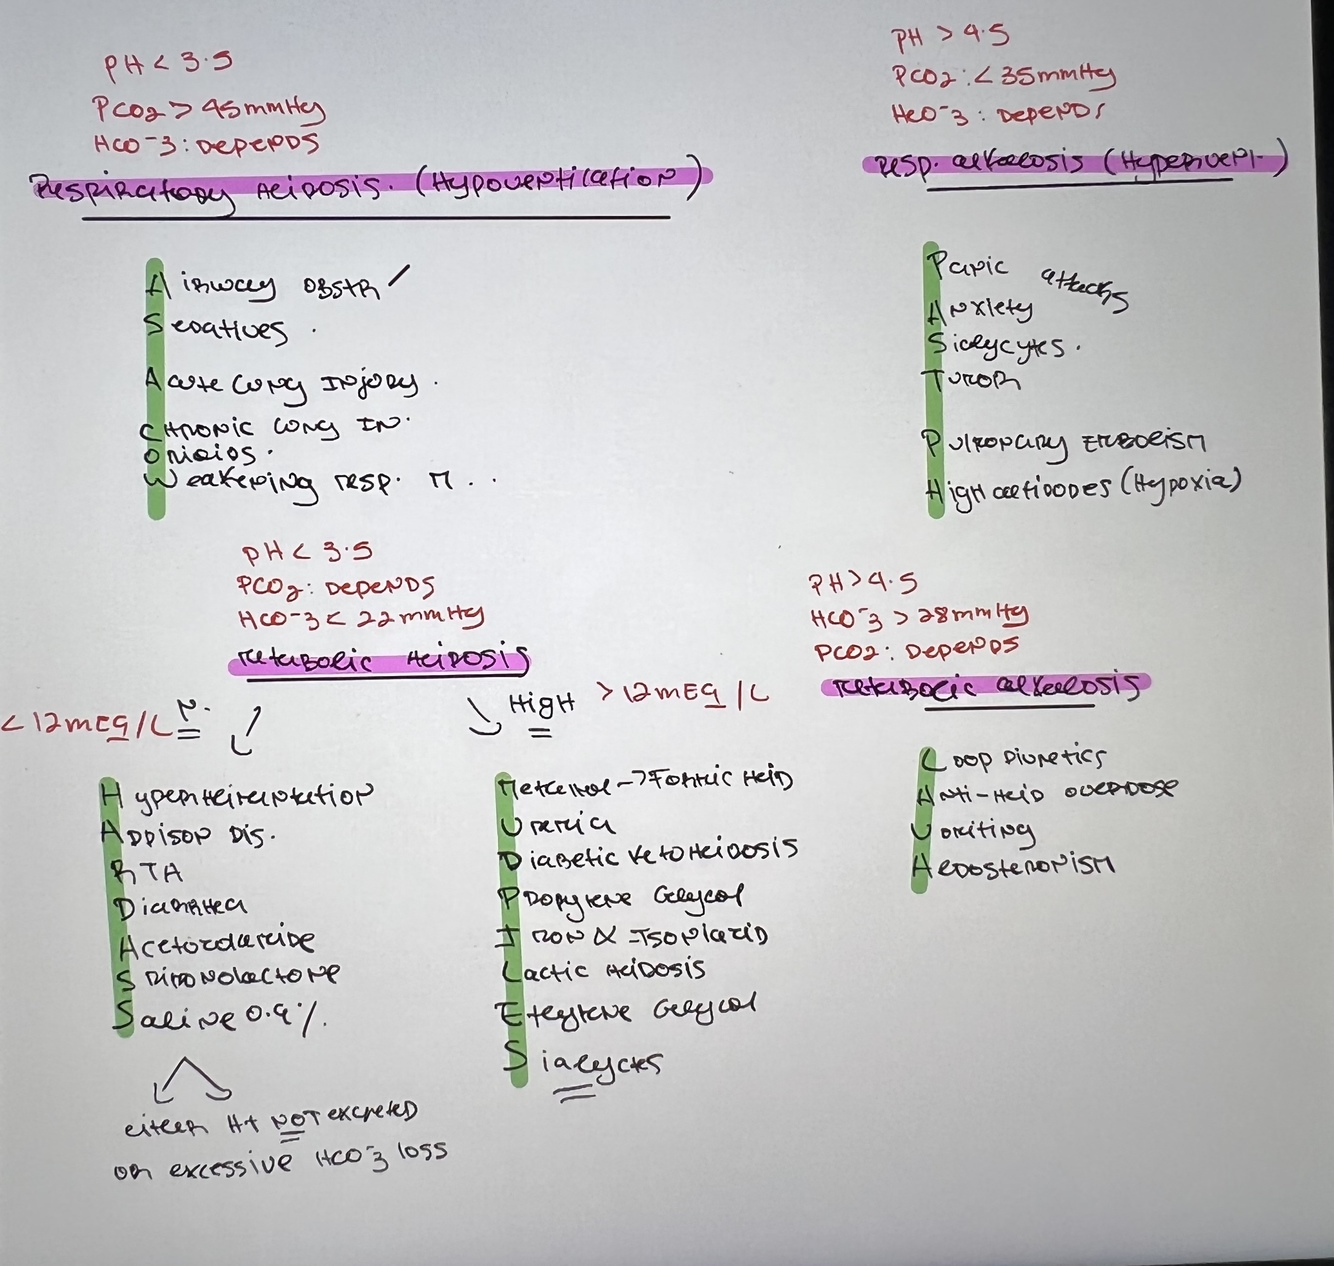 PH < 3.5
PCO2 > 45mmHg
HCO-3 : DEPENDS
Respiratory Acidosis. (Hypoventilation)
Airway obstr
Sedatives .
Acute lung Injury .
Chronic lung In.
Opioids.
Weakening resp. M . . .
PH > 4.5
PCO2 : < 35mmHg
HCO-3 : DEPENDS
Resp. alkalosis (Hypervent.)
Panic attacks
Anxiety
Tumor
Pulmonary Embolism
High altitudes (Hypoxia)
PH < 3.5
PCO2 : DEPENDS
HCO-3 < 22mmHg
Metabolic Acidosis
< 12mEq/L N.
High > 12mEq/L
Hyperalimentation
Addison Dis.
RTA
Diarrhea
Acetazolamide
Spironolactone
Saline 0.9%.
either H+ NOT excreted
or excessive HCO-3 loss
Methanol -> Formic Acid
Uremia
Diabetic Ketoacidosis
Propylene Glycol
Iron & Isoniazid
Lactic Acidosis
Ethylene Glycol
PH > 4.5
HCO-3 > 28mmHg
PCO2 : DEPENDS
Metabolic alkalosis
Loop Diuretics
Anti-Acid overdose
Vomiting
Aldosteronism